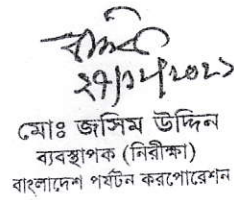 ২৭/১২/২০২১
মোঃ জসিম উদ্দিন
ব্যবস্থাপক (নিরীক্ষা)
বাংলাদেশ পর্যটন করপোরেশন